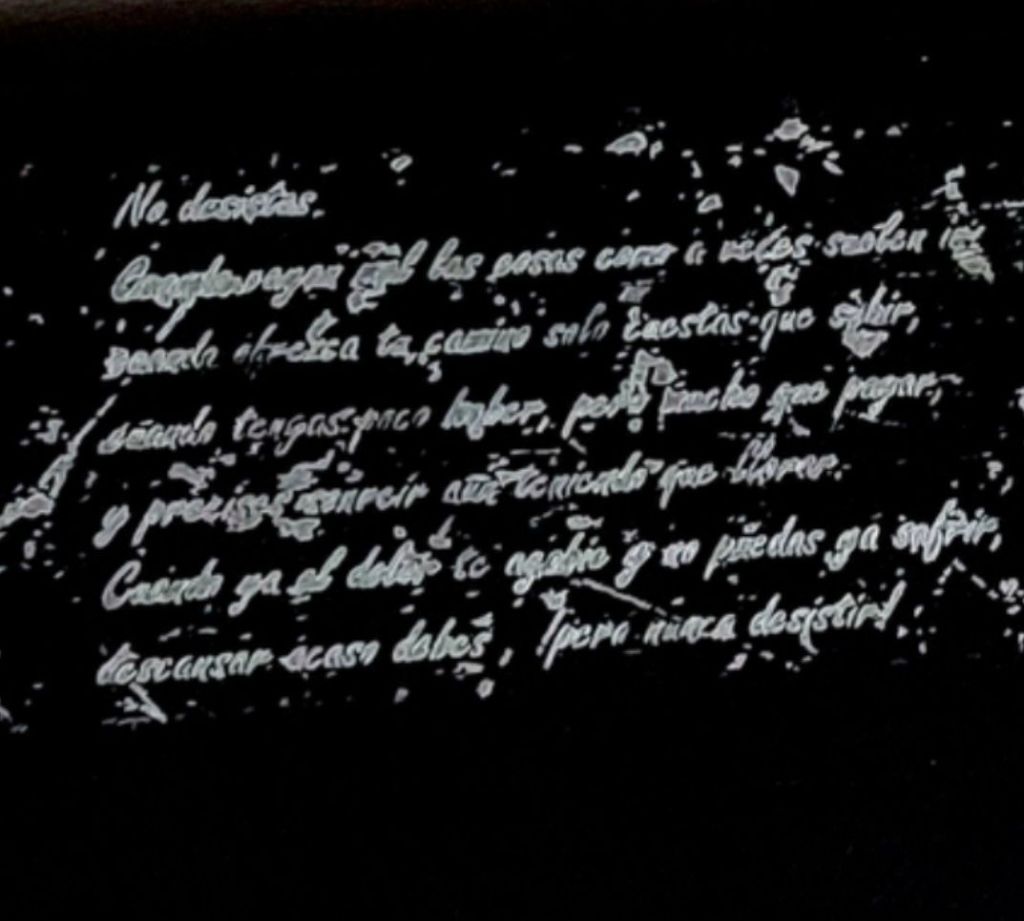 No desistas.
Cuando vayan mal las cosas como a veces suelen ir
cuando ofrezca tu camino solo cuestas que subir,
cuando tengas poco haber, pero mucho que pagar,
y precises sonreír aún teniendo que llorar.
Cuando ya el dolor te agobie y no puedas ya sufrir,
descansar acaso debes, ¡pero nunca desistir!